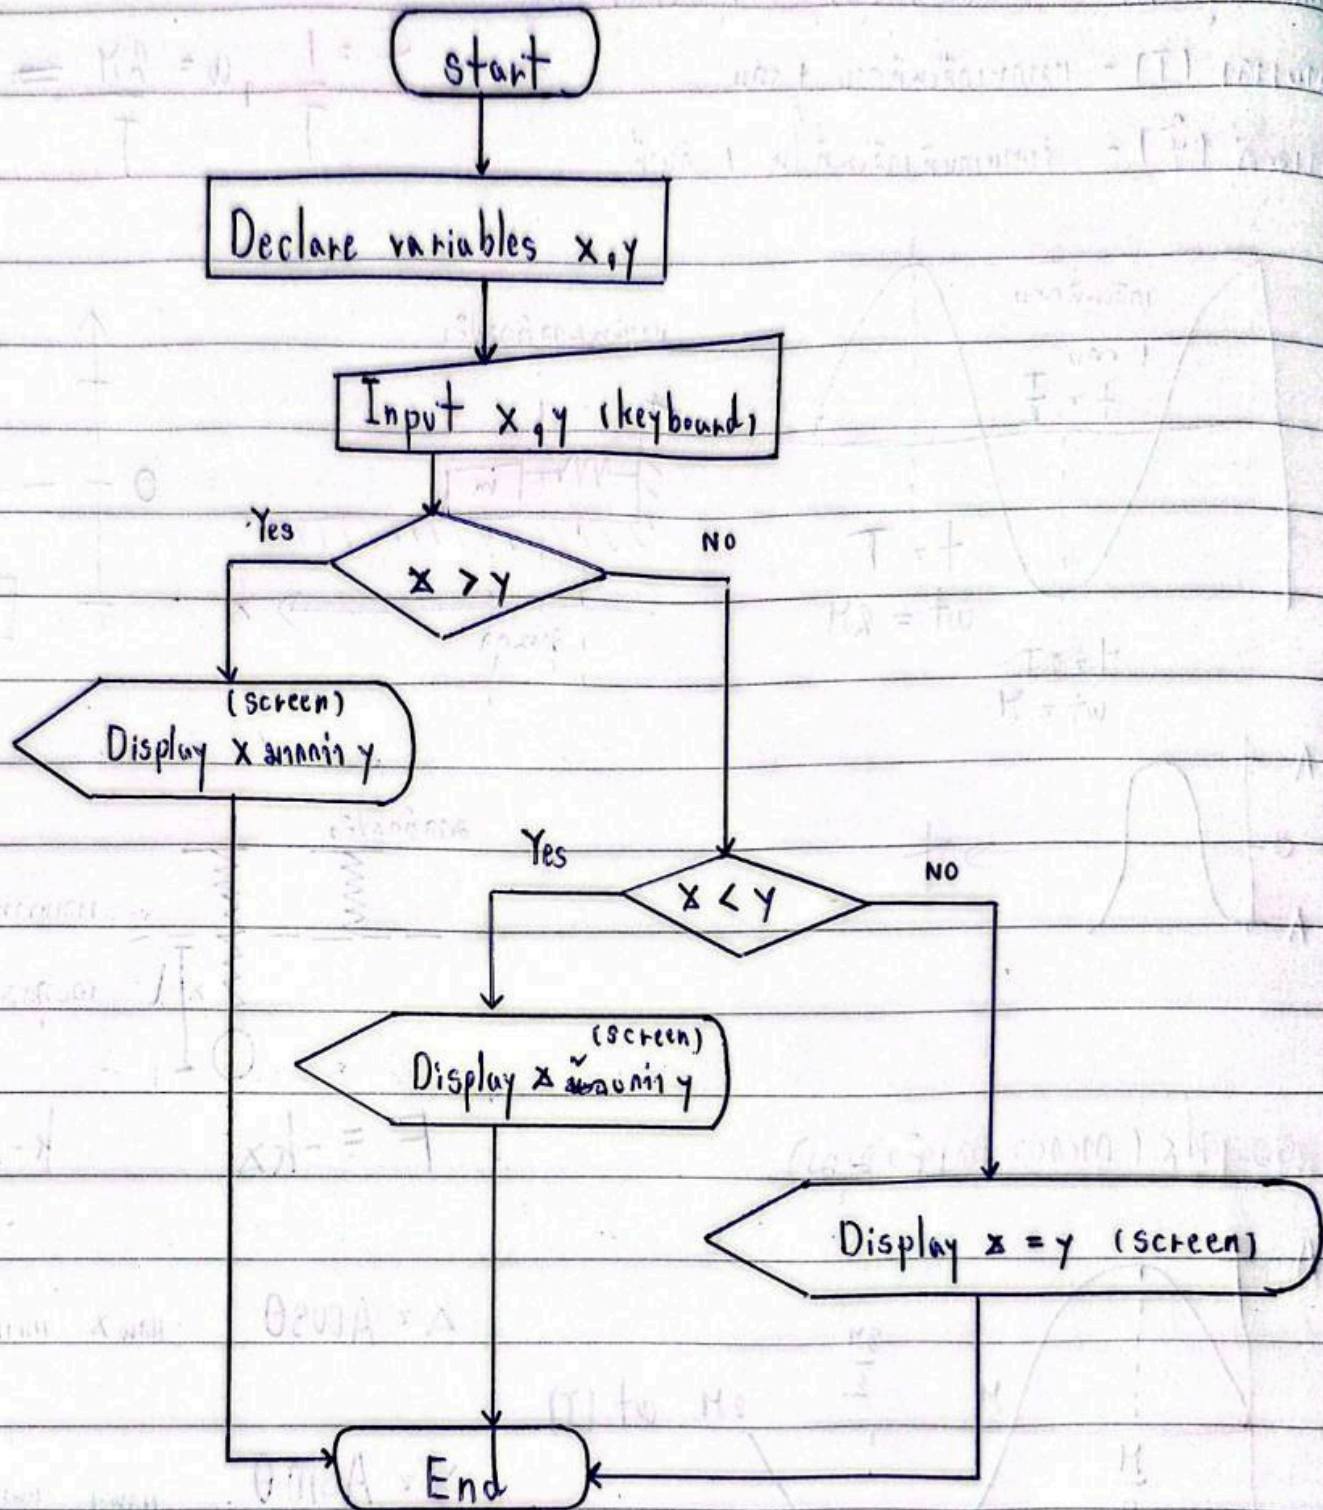 start
Declare variables x, y
Input x, y (keyboard)
Yes
NO
x > y
(screen)
Display x มากกว่า y
Yes
NO
x < y
(screen)
Display x น้อยกว่า y
Display x = y (screen)
End